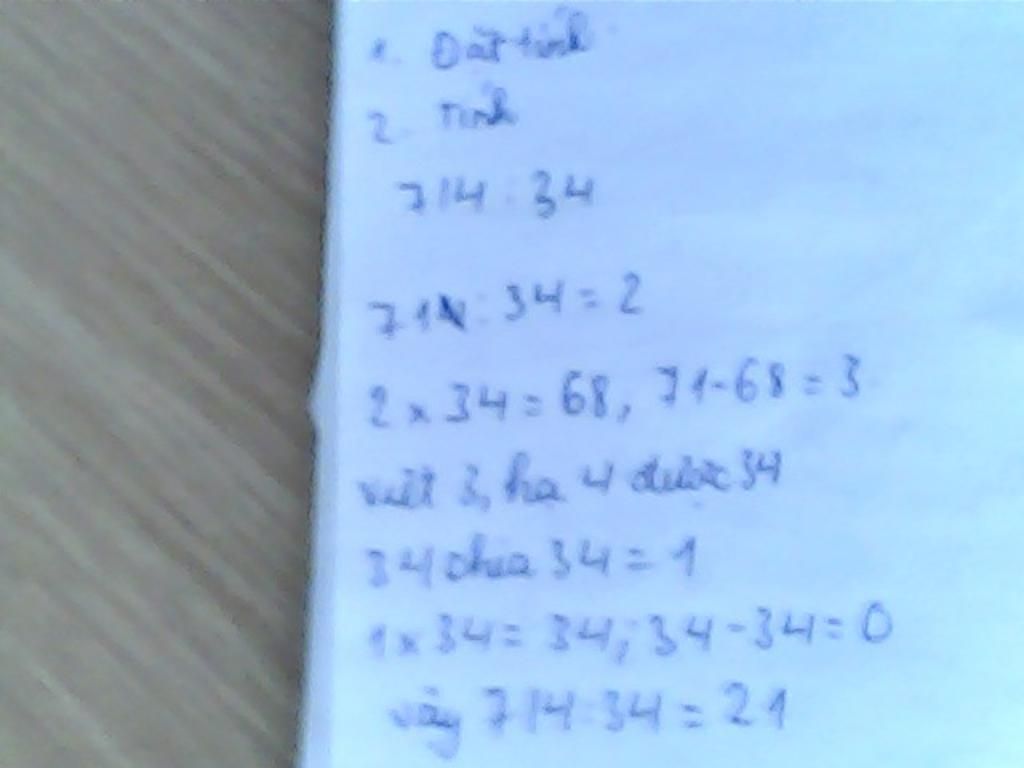 1. Đặt tính
2. Tính
714 : 34
71 : 34 = 2
2 x 34 = 68, 71-68 = 3
viết 3, hạ 4 được 34
34 chia 34 = 1
1 x 34 = 34; 34-34 = 0
vậy 714 : 34 = 21